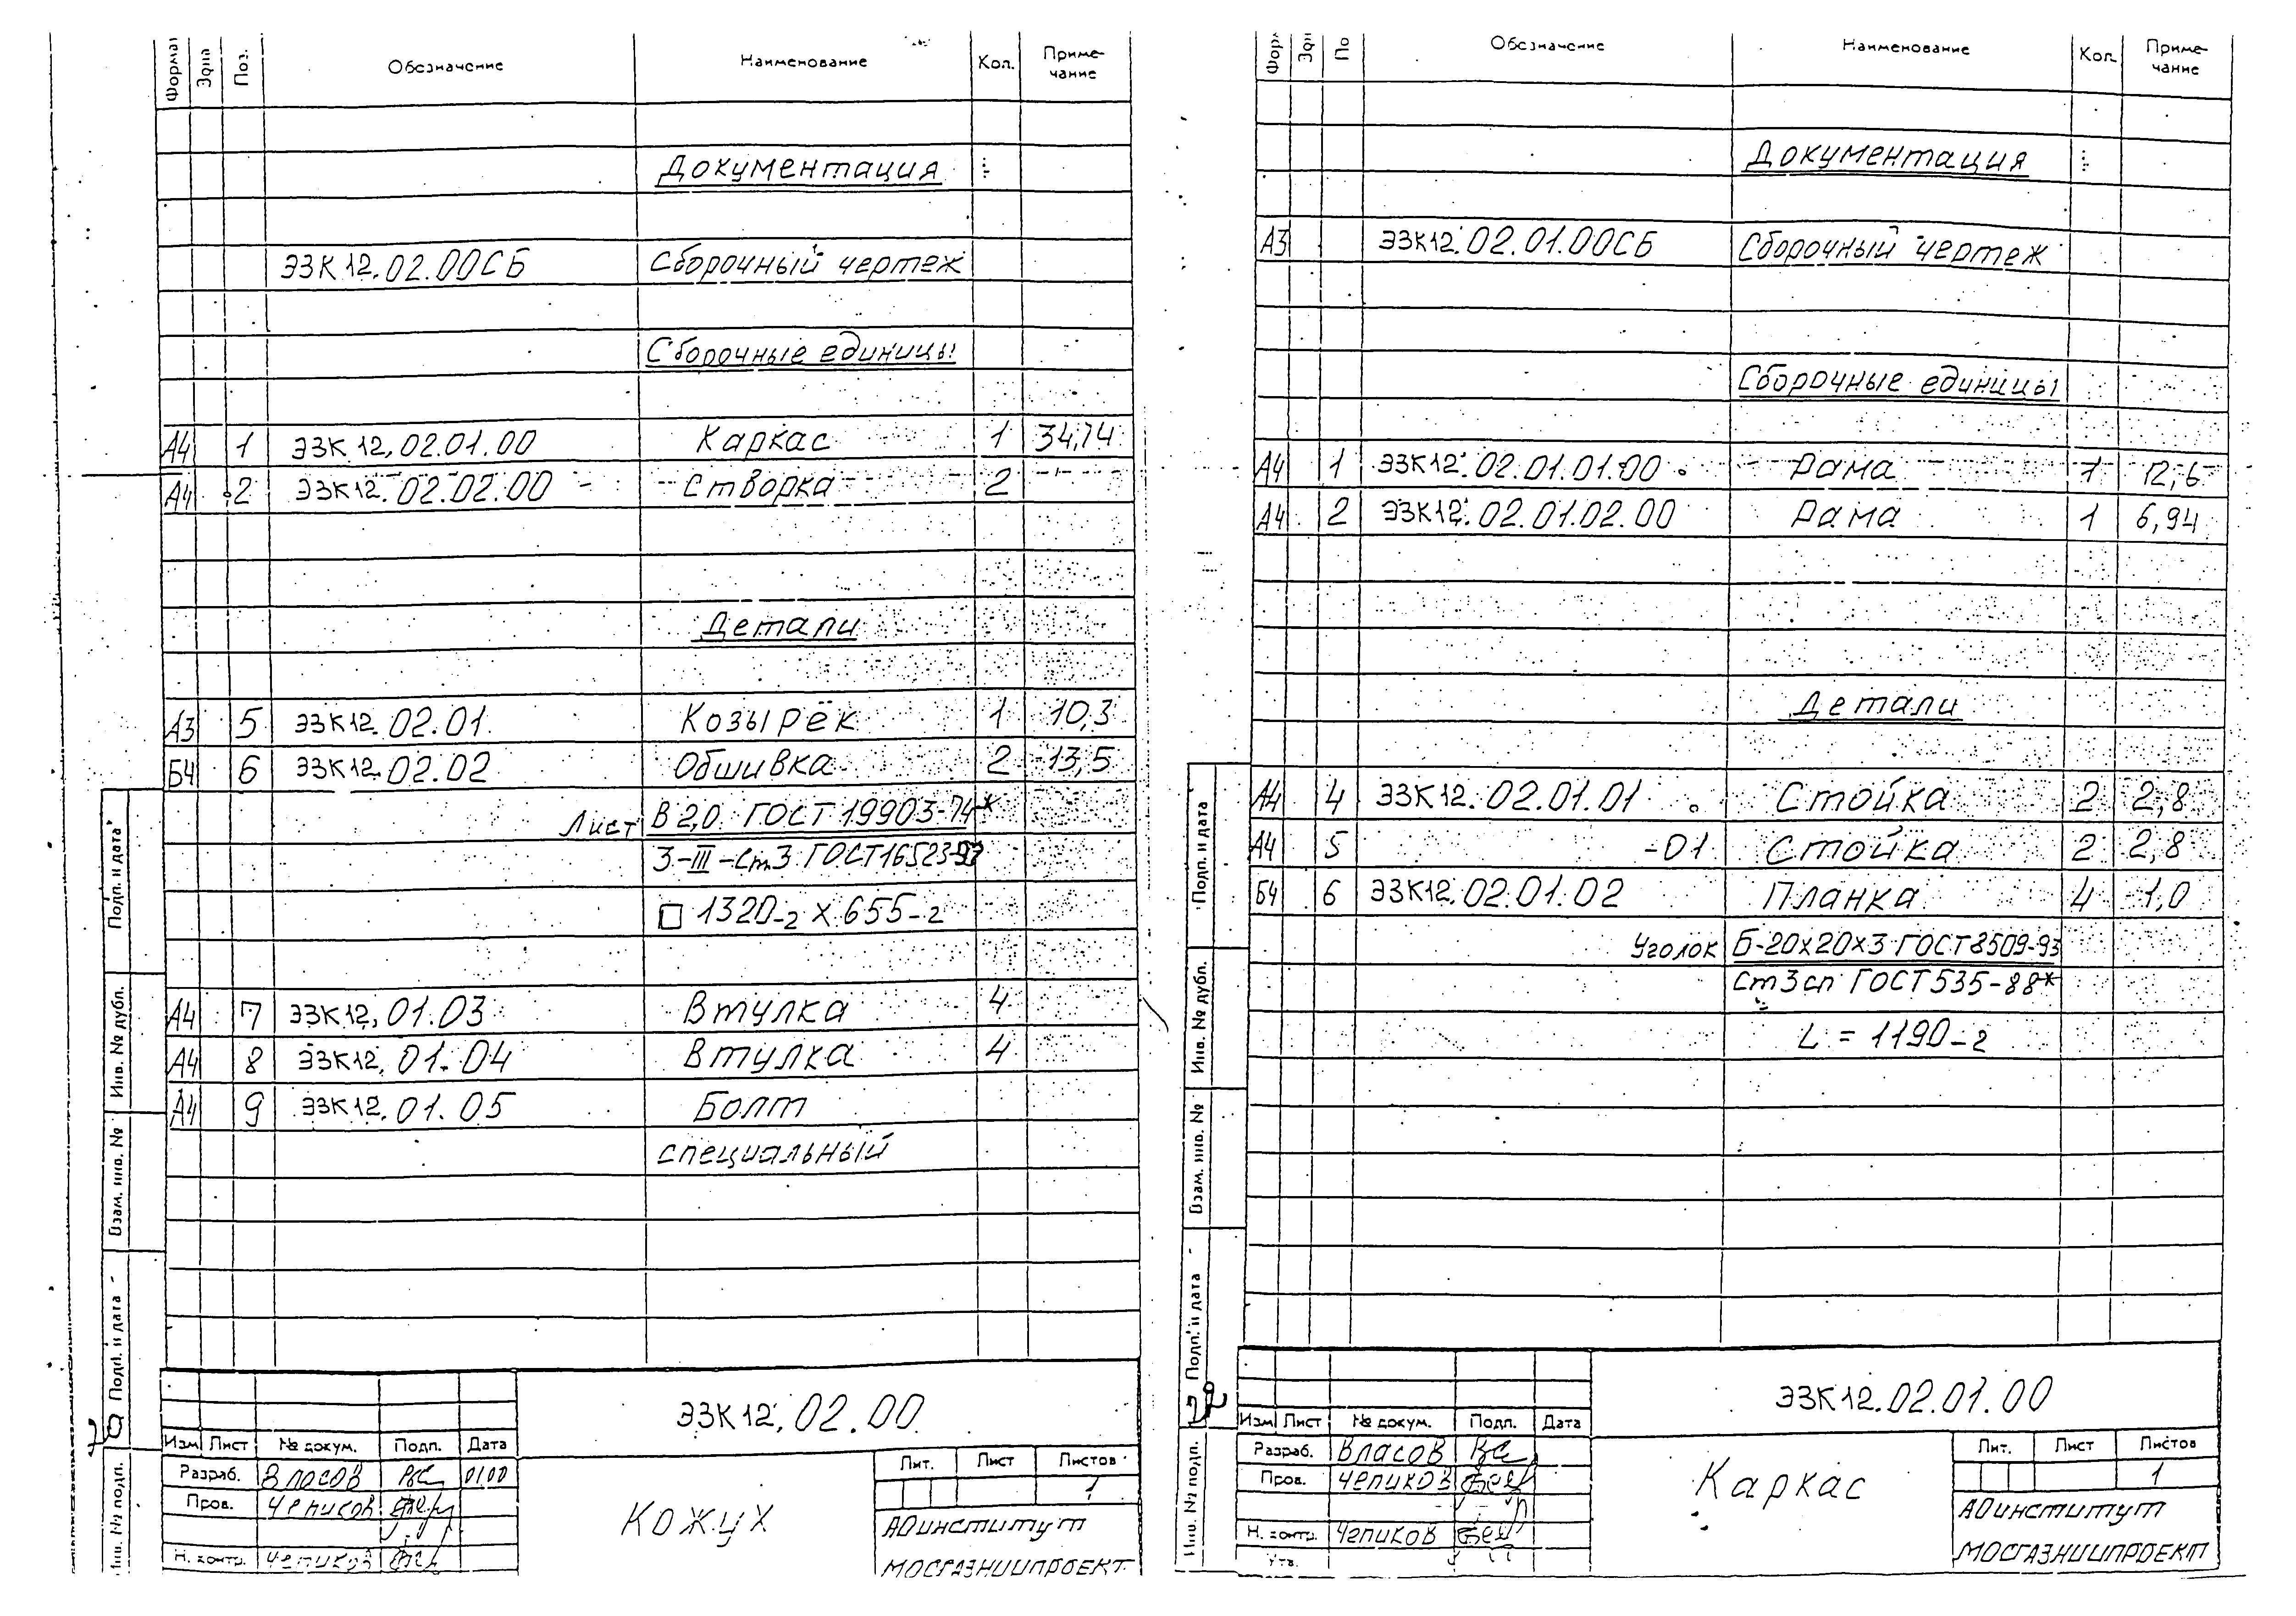 Формат Зона Поз. Обозначение Наименование Кол. Приме-
чание
Документация
ЭЗК12.02.00СБ Сборочный чертеж
Сборочные единицы
А4 1 ЭЗК12.02.01.00 Каркас 1 34,74
А4 2 ЭЗК12.02.02.00 Створка 2
Детали
А3 5 ЭЗК12.02.01 Козырёк 1 10,3
Б4 6 ЭЗК12.02.02 Обшивка 2 13,5
Лист В 2,0 ГОСТ 19903-74*
3-III-Ст3 ГОСТ16523-97
□ 1320-2 х 655-2
А4 7 ЭЗК12.01.03 Втулка 4
А4 8 ЭЗК12.01.04 Втулка 4
А4 9 ЭЗК12.01.05 Болт
специальный
Подп. и дата
Инв. № дубл.
Взам. инв. №
Подп. и дата
Инв. № подл.
ЭЗК12.02.00
Изм Лист № докум. Подп. Дата
Разраб. Власов 01.00
Пров. Чепиков
Н. контр. Чепиков
Кожух
Лит. Лист Листов
1
АОинститут
МОСГАЗНИИПРОЕКТ
Форм Зон По Обозначение Наименование Кол. Приме-
чание
Документация
А3 ЭЗК12.02.01.00СБ Сборочный чертеж
Сборочные единицы
А4 1 ЭЗК12.02.01.01.00 Рама 1 12,6
А4 2 ЭЗК12.02.01.02.00 Рама 1 6,94
Детали
А4 4 ЭЗК12.02.01.01 Стойка 2 2,8
А4 5 -01 Стойка 2 2,8
Б4 6 ЭЗК12.02.01.02 Планка 4 1,0
Уголок Б-20х20х3 ГОСТ8509-93
Ст3сп ГОСТ535-88*
L = 1190-2
Подп. и дата
Инв. № дубл.
Взам. инв. №
Подп. и дата
Инв. № подл.
ЭЗК12.02.01.00
Изм Лист № докум. Подп. Дата
Разраб. Власов
Пров. Чепиков
Н. контр. Чепиков
Утв.
Каркас
Лит. Лист Листов
1
АОинститут
МОСГАЗНИИПРОЕКТ